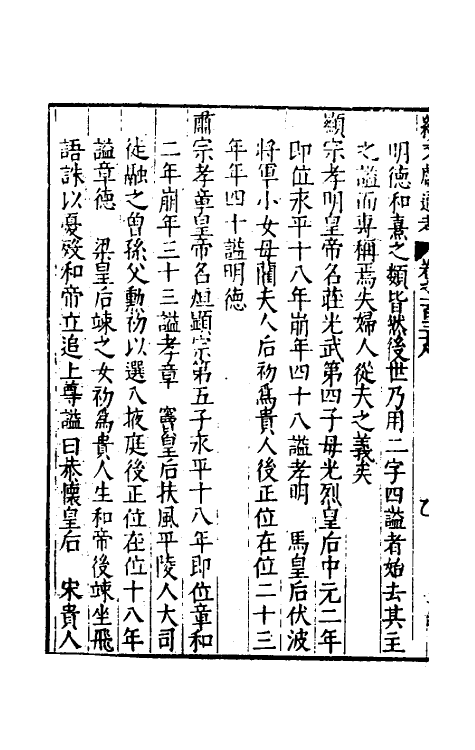 續文獻通考 卷之一百三十八
明德和熹之類皆然後世乃用二字四謚者始去其主
之謚而專稱焉失婦人從夫之義矣
顯宗孝明皇帝名莊光武第四子母光烈皇后中元二年
即位永平十八年崩年四十八謚孝明 馬皇后伏波
將軍小女母藺夫人后初爲貴人後正位在位二十三
年年四十謚明德
肅宗孝章皇帝名烜顯宗第五子永平十八年即位章和
二年崩年三十三謚孝章 竇皇后扶風平陵人大司
徒融之曾孫父勳初以選入掖庭後正位在位十八年
謚章德 梁皇后竦之女初爲貴人生和帝後竦坐飛
語誅以憂殁和帝立追上尊謚曰恭懷皇后 宋貴人